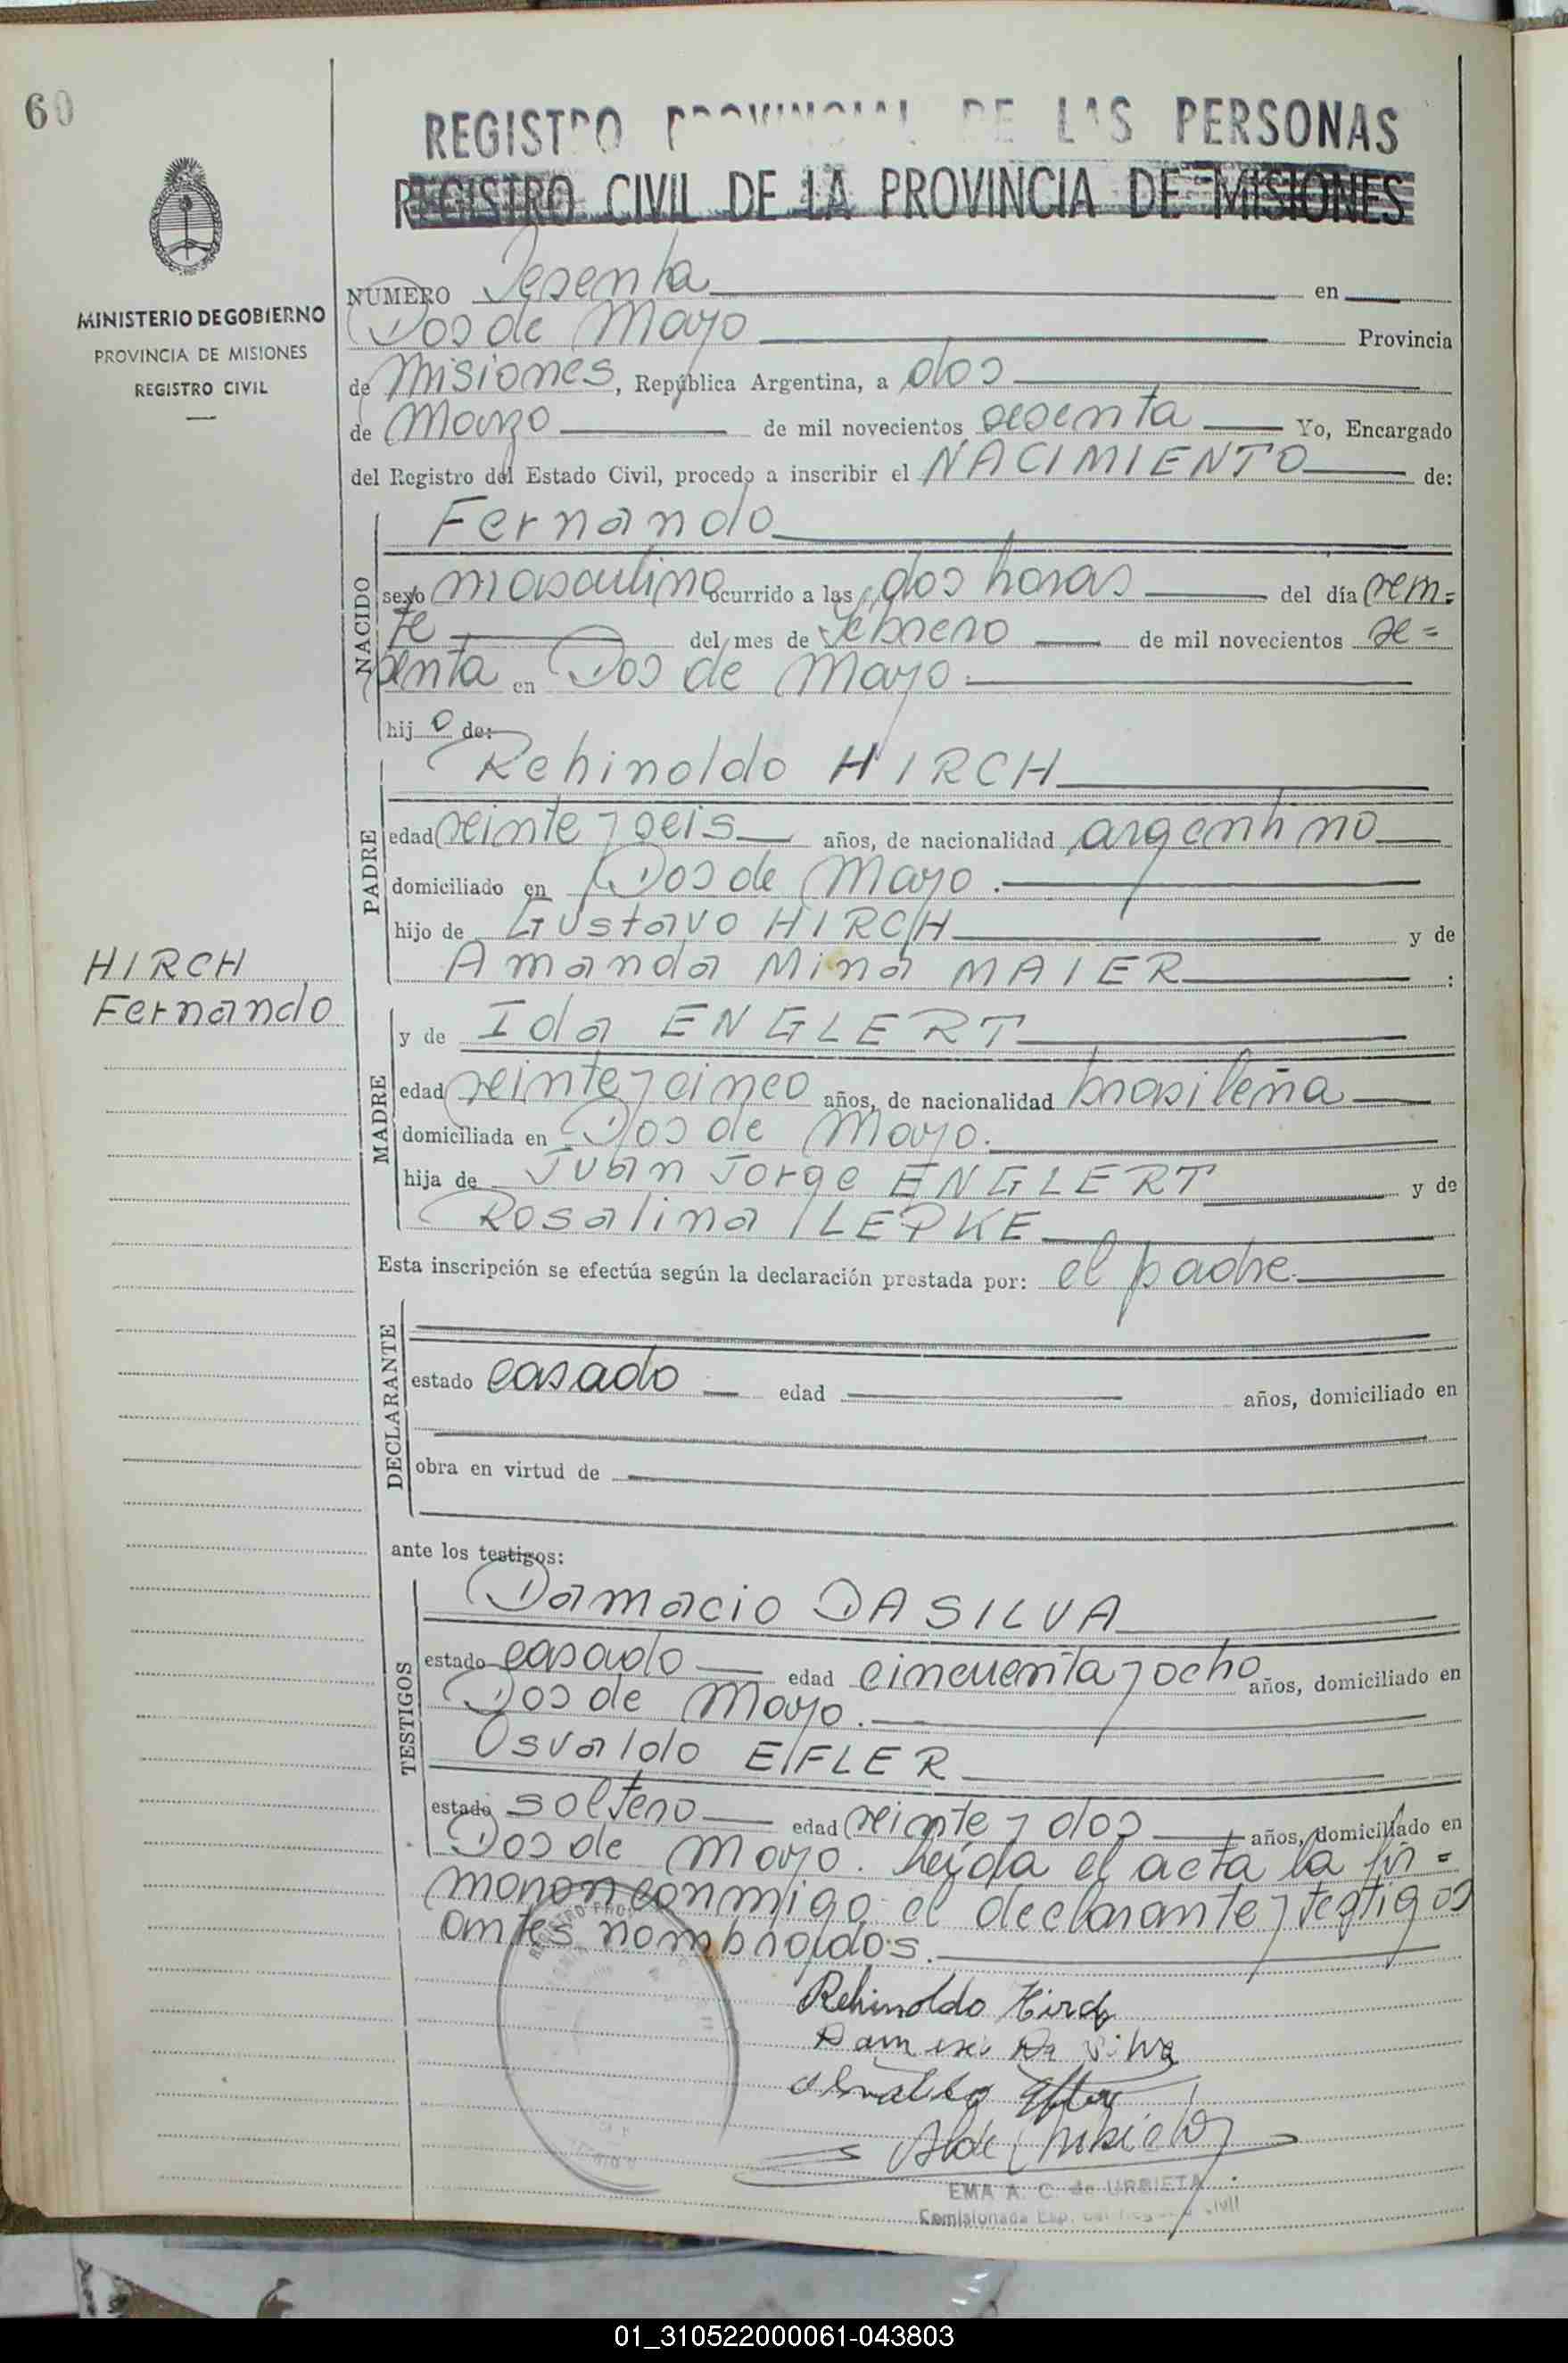 60
REGISTRO PROVINCIAL DE LAS PERSONAS
REGISTRO CIVIL DE LA PROVINCIA DE MISIONES
MINISTERIO DE GOBIERNO
PROVINCIA DE MISIONES
REGISTRO CIVIL
NUMERO Sesenta en
Dos de Mayo Provincia
de Misiones, República Argentina, a dos
de Marzo de mil novecientos sesenta Yo, Encargado
del Registro del Estado Civil, procedo a inscribir el NACIMIENTO de:
NACIDO
Fernando
sexo masculino ocurrido a las dos horas del día vein=
te del mes de Febrero de mil novecientos se=
senta en Dos de Mayo.
hijo de:
PADRE
Rehinoldo HIRCH
edad veinte y seis años, de nacionalidad argentino
domiciliado en Dos de Mayo.
hijo de Gustavo HIRCH y de
Amanda Mina MAIER :
HIRCH
Fernando
MADRE
y de Ida ENGLERT
edad veinte y cinco años, de nacionalidad brasileña
domiciliada en Dos de Mayo.
hija de Juan Jorge ENGLERT y de
Rosalina LEPKE
Esta inscripción se efectúa según la declaración prestada por: el padre.
DECLARANTE
estado casado edad años, domiciliado en
obra en virtud de
ante los testigos:
TESTIGOS
Damacio DA SILVA
estado casado edad cincuenta y ocho años, domiciliado en
Dos de Mayo.
Osvaldo EIFLER
estado soltero edad veinte y dos años, domiciliado en
Dos de Mayo. Leída el acta la fir=
maron conmigo el declarante y testigos
antes nombrados.
Rehinoldo Hirch
Da Silva
EMA A. C. de URBIETA
Comisionada Esp. del Registro Civil
01_310522000061-043803